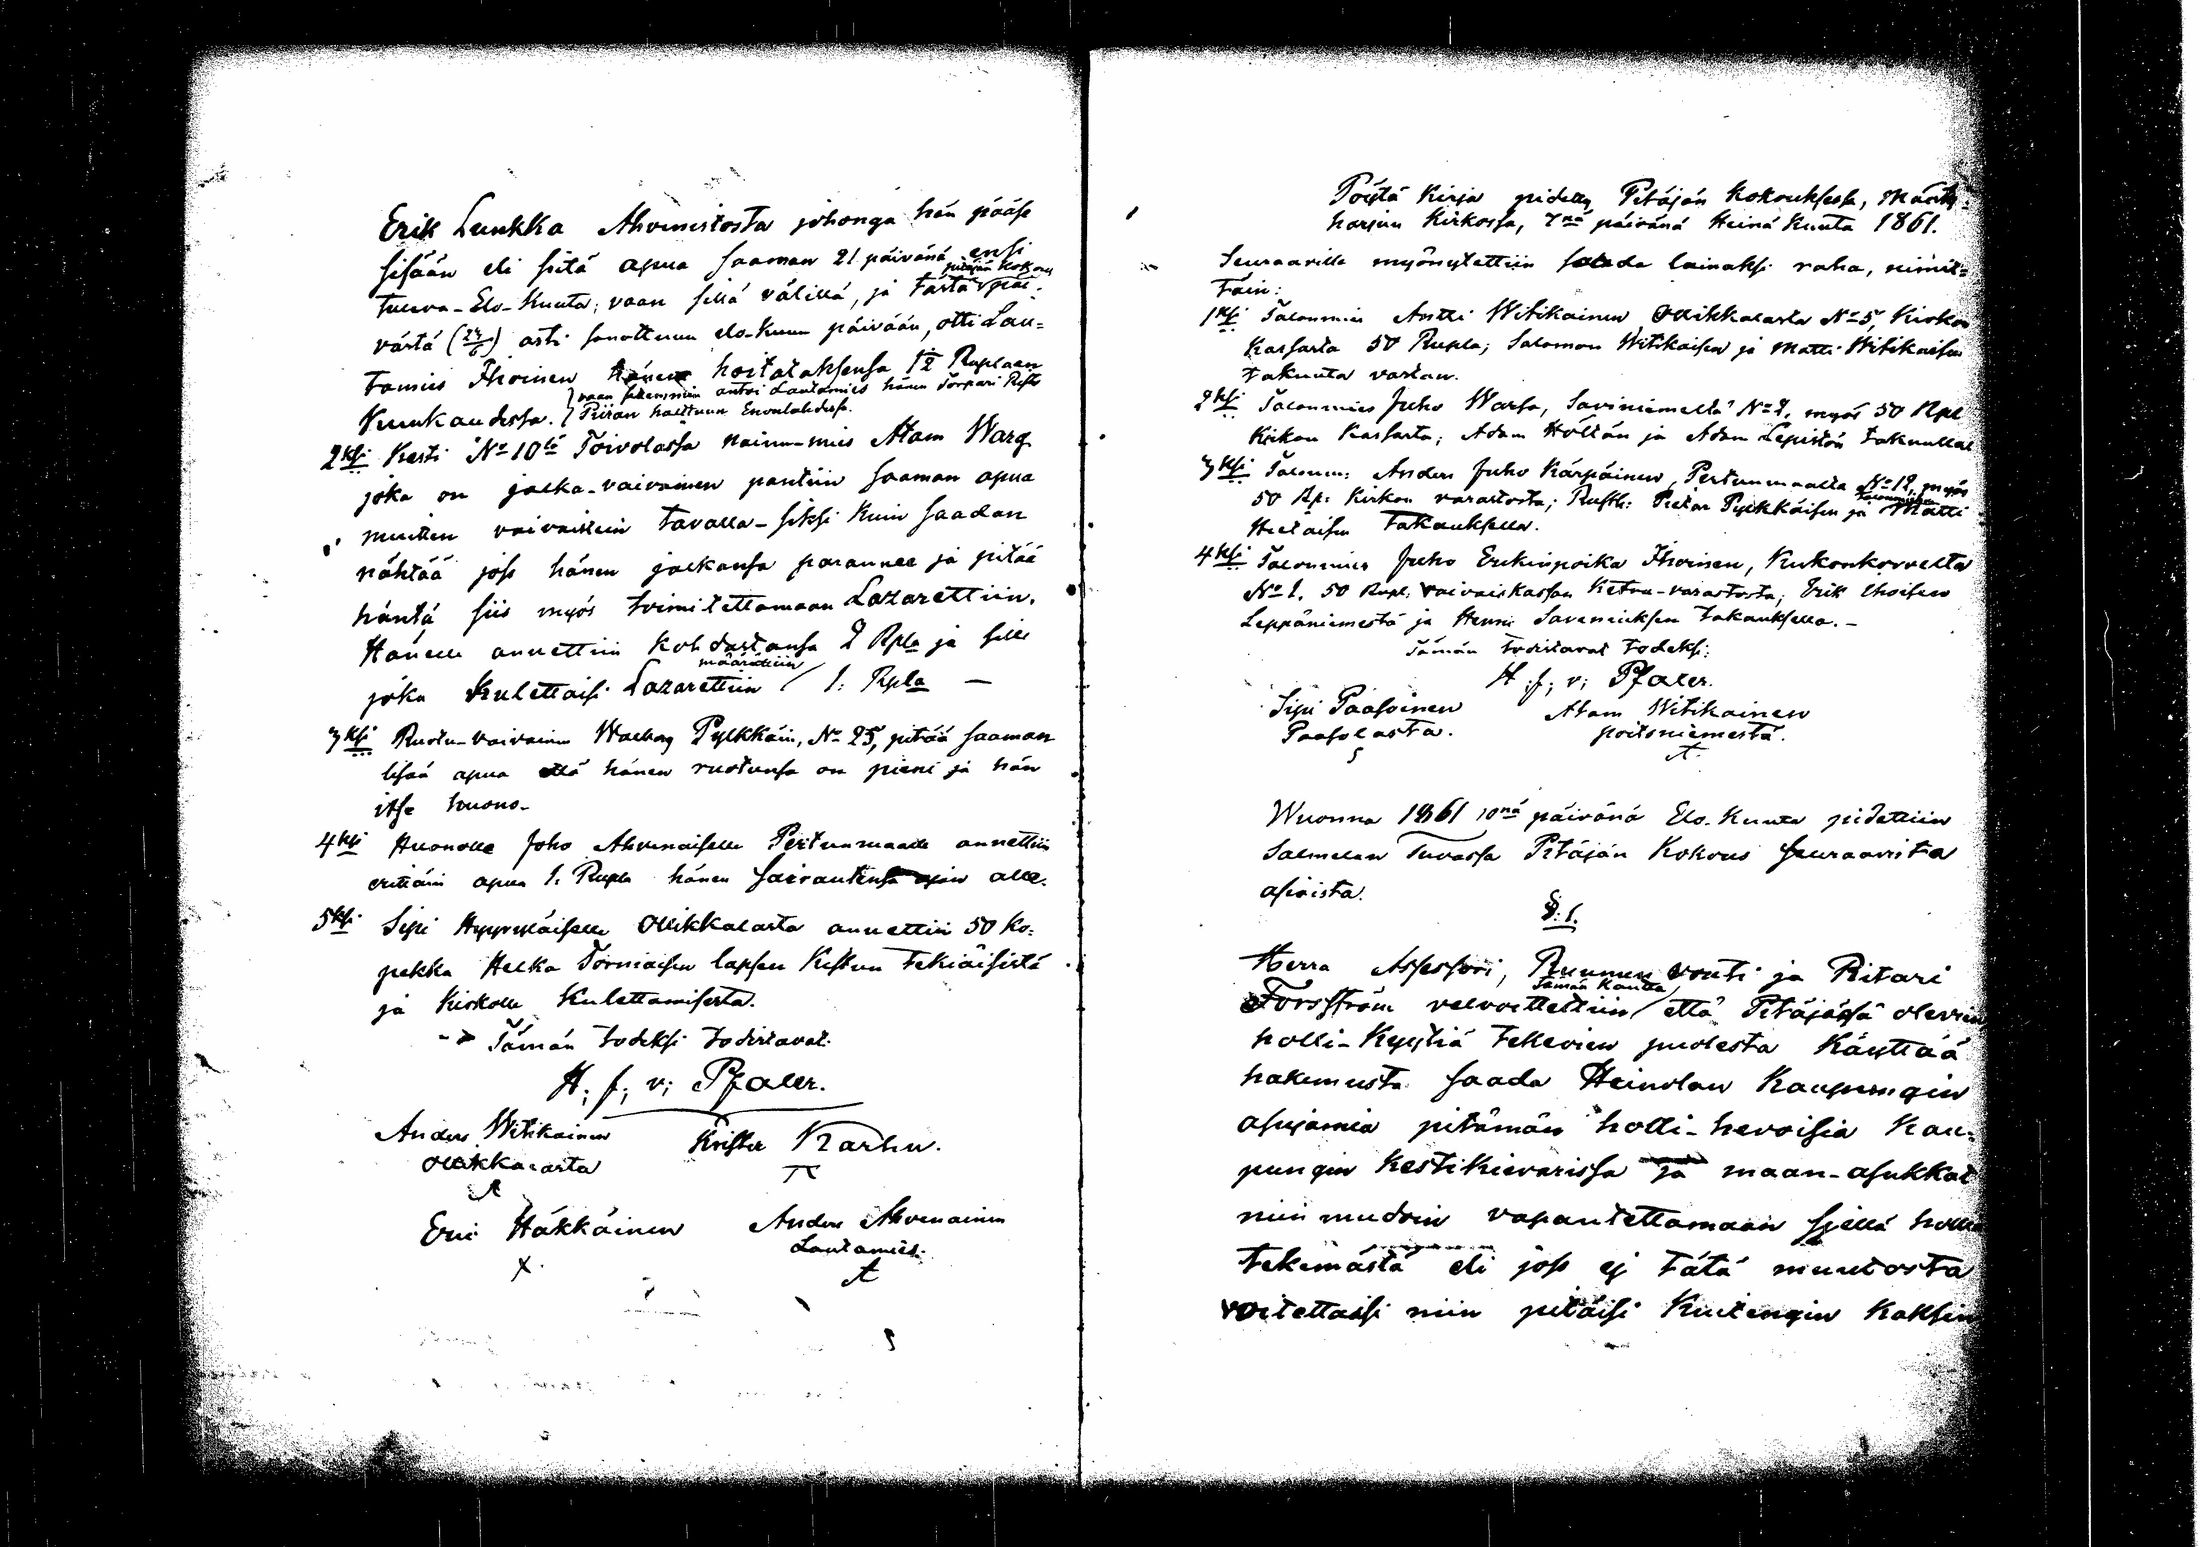 Erik Lunkka Ahvenistosta johonga hän pääse
sisään eli sitä apua saaman 21 päivänä ensi
pitäjän kokous
tuleva-Elo-Kuuta; vaan sillä välillä, ja tästä päi-
västä (24/6) asti sanottuun elo-kuun päivään, otti Lau=
tamies Ihoinen hänen hoitataksensa 1½ Ruplaan
Kuukaudessa. vaan sekemmin antoi Lautamies hänen Torpari
Piiran haltuun Enonlahdessa.
2ksi Kesti No 10tä Toivolassa nainu-mies Atam Warg
joka on jalka-vaivainen pantiin saaman apua
muitten vaivaistein tavalla-siksi kuin saadan
nähtää joss hänen jalkansa parannee ja pitää
häntä siis myös toimitettamaan Lazarettiin.
Hänelle annettiin kohdastansa 2 Rpla ja sille
määrättiin
joka Kulettaisi Lazarettiin 1: Rpla —
3ksi Ruotu-vaivainen Walborg Pylkkäin, No 25, pitää saaman
lisää apua että hänen ruotunsa on pieni ja hän
itse huono-
4ksi Huonolle Joho Ahvenaiselle Pertunmaalle annettiin
erittäin apua 1: Rupla hänen sairautensa ajin alle.
5ksi Sipi Hyyryläiselle Ollikkalasta annettiin 50 ko=
pekka Helka Torniaisen lapsen Kistun tekiäisistä
ja Kirkolle Kulettamisesta.
Tämän todeksi todistavat.
H; f; v; Pfaler.
Anders Witikainen Krister Karhu.
Ollikkalasta
Eric Häkkäinen Anders Ahvenainen
Lautamies.
Pöytä Kirja pidetty Pitäjän Kokouksessa, Mänty=
harjun Kirkossa, 7nä päivänä Heinä Kuuta 1861.
Seuraavilla myönytettiin saada lainaksi raha, nimit=
täin:
1ksi Talonmies Antti Witikainen Ollikkalasta No 5, Kirkon
Kassasta 50 Rupla; Salomon Witikaisen ja Matti Witikaisen
takuuta vastan.
2ksi Talonmies Juho Warsa, Saviniemeltä No 2, myös 50 Rpl
Kirkon Kassasta; Adam Holtän ja Adam Lepistön takuullat
3ksi Talonm: Anders Juho Kärpäinen, Pertunmaalta No 12, myös
50 Rp: Kirkon varastosta; Rusth: Pietar Pylkkäisen ja Talonmiehen Matti
Hietaisen Takauksella.
4ksi Talonmies Juho Erikinpoika Ihoinen, Kukonkorvelta
No 1. 50 Rupl. Vaivaiskassan Ketun-varastosta; Erik Ihoisen
Leppäniemestä ja Henric Saveniuksen takauksella. —
Tämän todistavat todeksi:
H; f; v; Pfaler.
Sipi Paasoinen Atam Witikainen
Paasolasta. poitsniemestä.
Wuonna 1861 10nä päivänä Elo-Kuuta pidettiin
Salmelan Tuvassa Pitäjän Kokous seuraavista
asioista.
§. 1.
Herra Assessori, Ruunun vouti ja Ritari
tämän kautta
Forsström velvoitettiin että Pitäjässä olevien
holli-Kyytiä tekevien puolesta Käyttää
hakemusta saada Heinolan Kaupungin
asujamia pitämän holli-hevoisia Kau=
pungin Kestikievarissa ja maan-asukkat
niin mudoin vapautettamaan siellä hollia
tekemästä eli joss ej tätä muutosta
voitettaisi niin pitäisi Kuitengin Kaksin